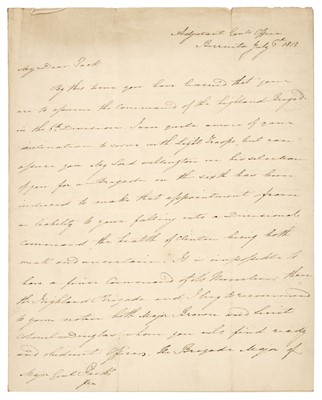 Adjutant Genls Office
July 1813
My Dear Pack
By this time you have learned that you
are to assume the command of the Highland Brigade
in the 6th Division I am quite aware of your
inclination to serve with light Troops, but can
assure you my Lord Wellington in his selection
of you for a Brigade in the sixth has been
induced to make that appointment from
a liability to your falling into a Divisional
command the health of Clinton being both
weak and uncertain. It is impossible to
have a finer command of its numbers than
the Highland Brigade and I beg to recommend
to your notice both Major Brown and Lieut
Colonel Douglas whom you will find ready
and Officers, the Brigade Major of
Major Genl Pack